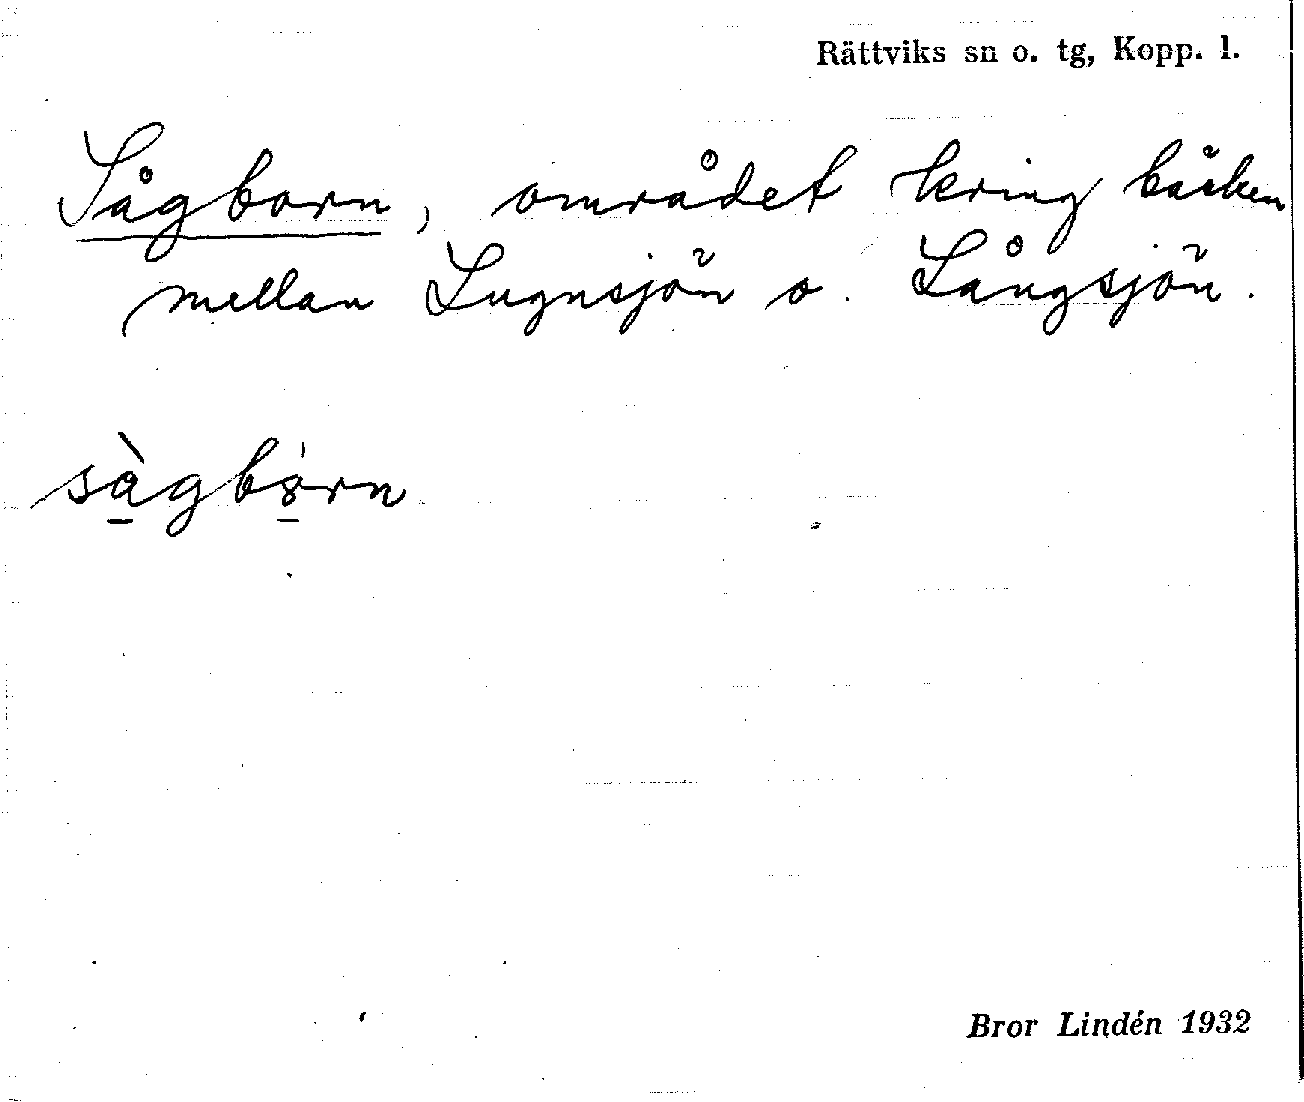 Rättviks sn o. tg, Kopp. l.
Sågborn, området kring bäcken
mellan Lugnsjön o. Långsjön.
sàgbö̀rn
Bror Lindén 1932